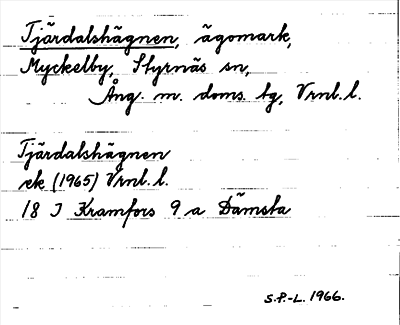 Tjärdalshägnen, ägomark,
Myckelby, Styrnäs sn,
Ång. m. doms. tg, Vrnl. l.
Tjärdalshägnen
ek (1965) Vrnl. l.
18 J Kramfors 9 a Dämsta
S.P.-L. 1966.